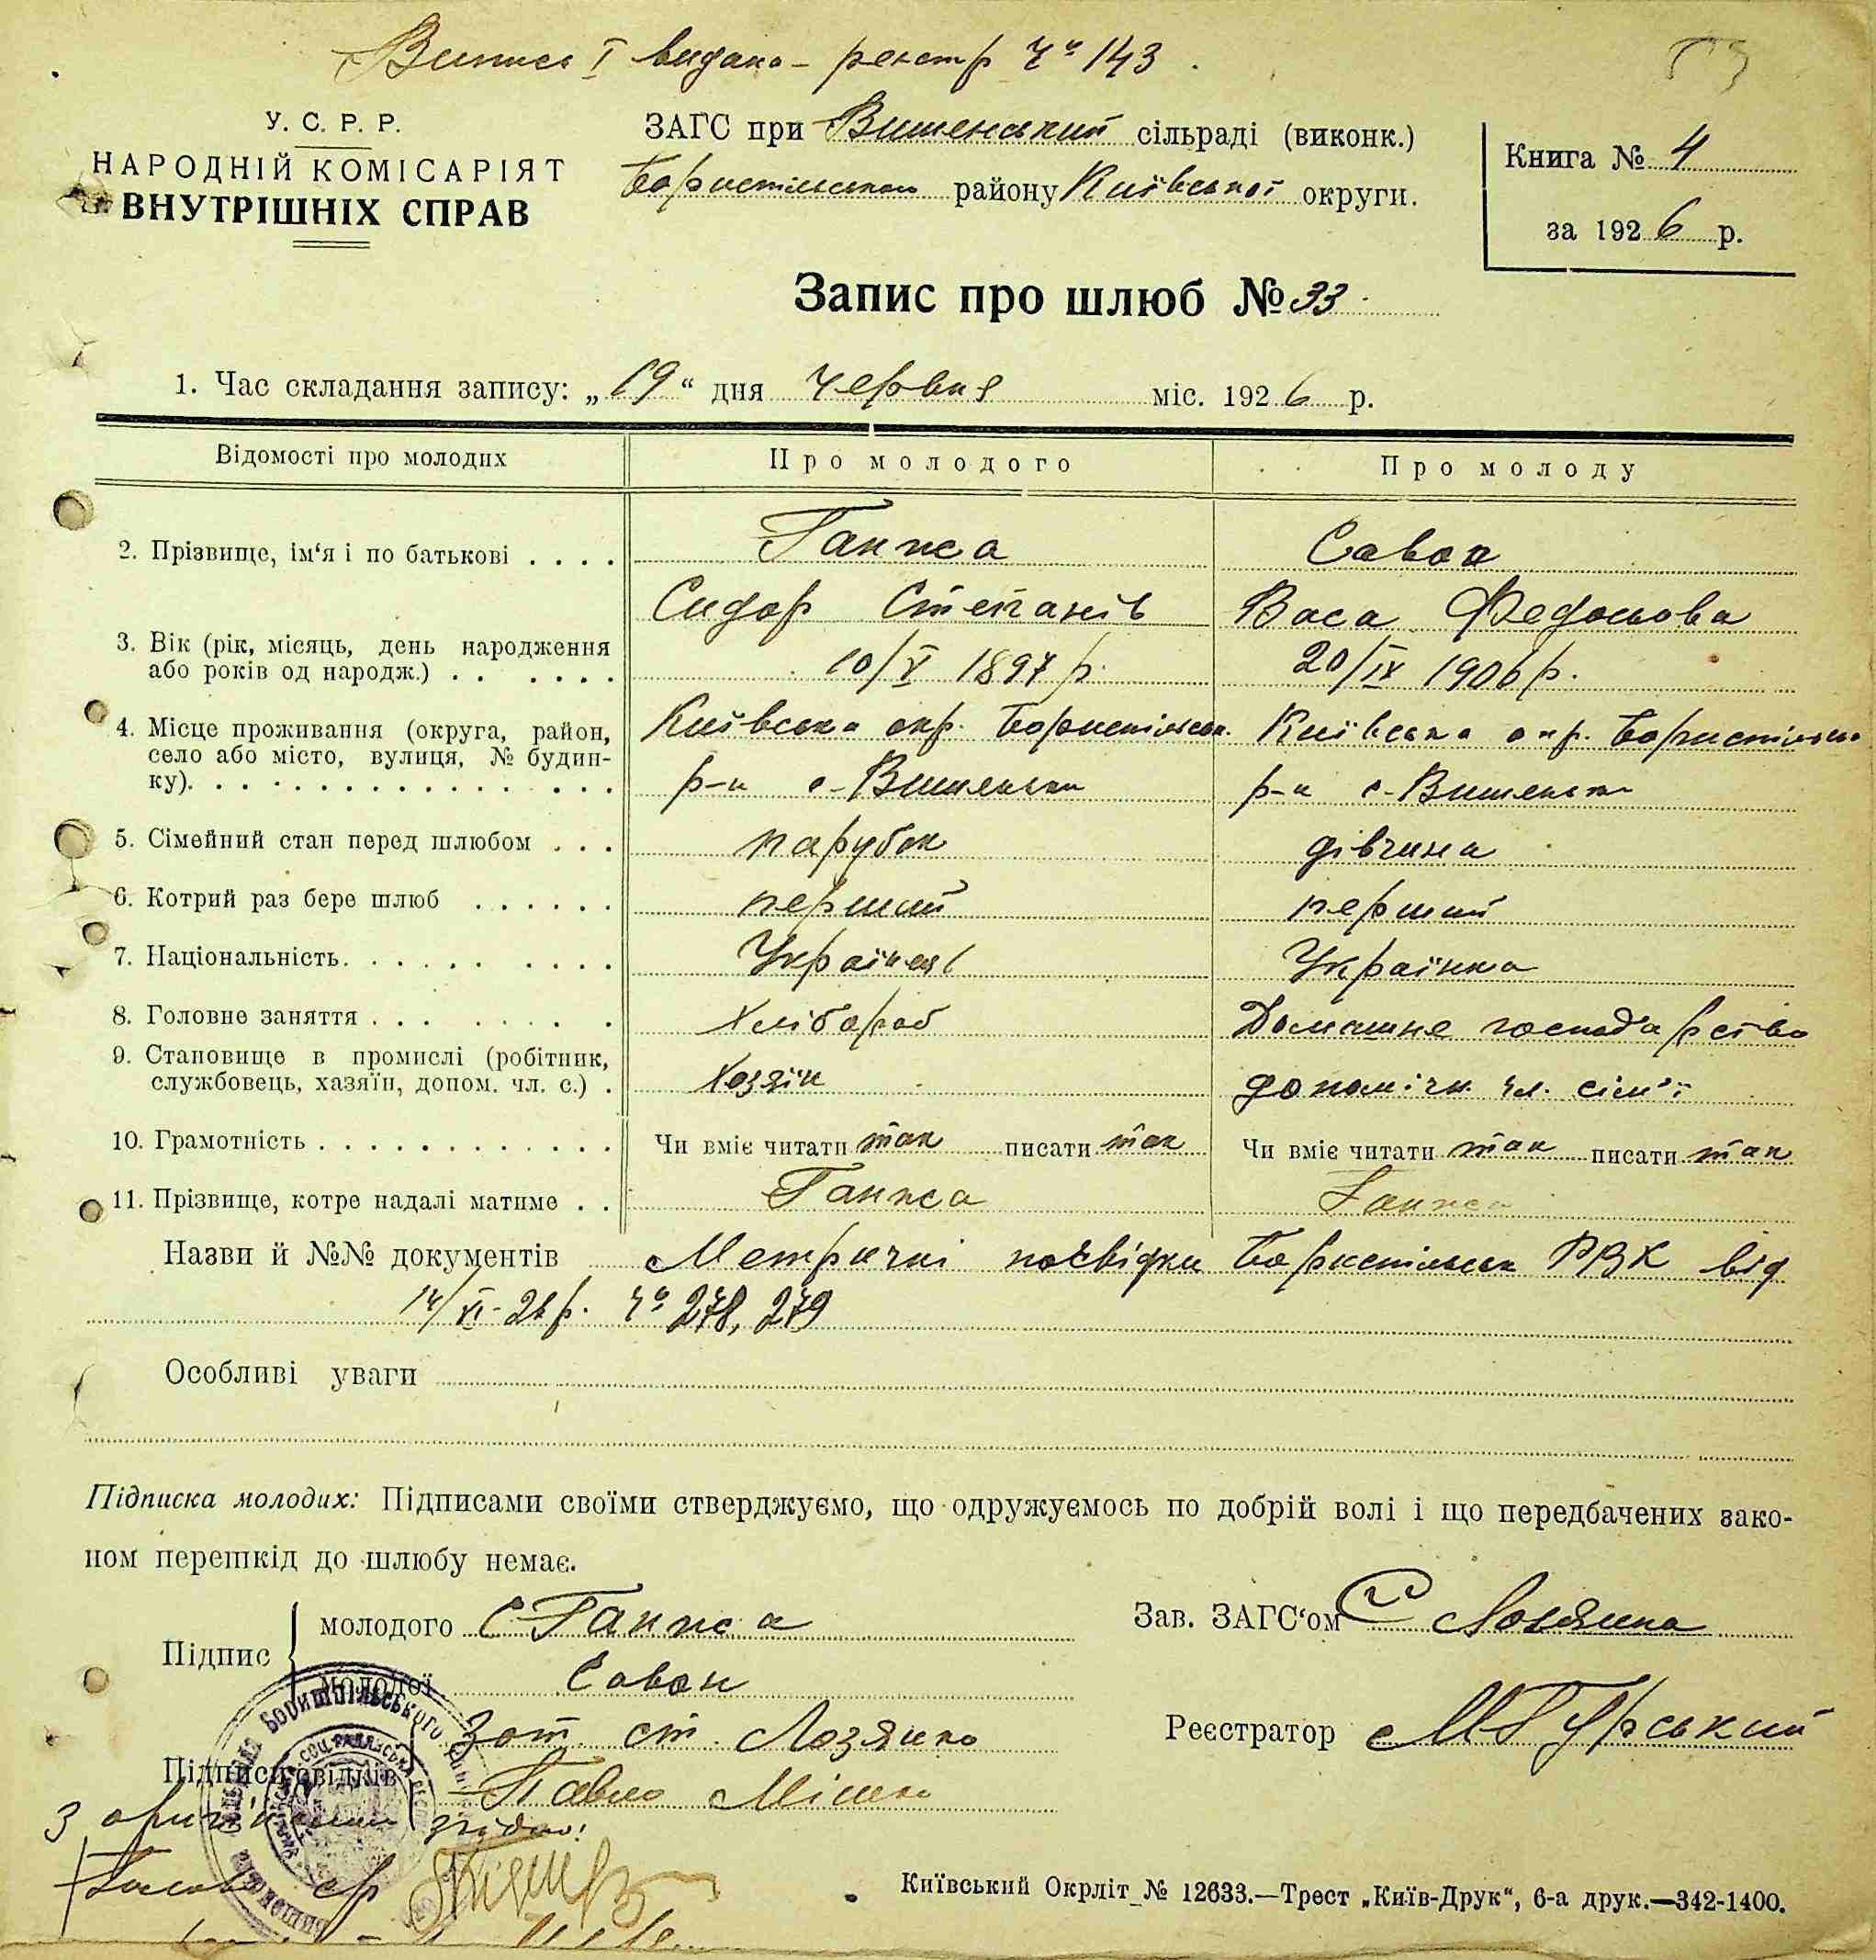 Виписі I видано – реєстр Ч° 143
У. С. Р. Р.
НАРОДНІЙ КОМІСАРІЯТ
ВНУТРІШНІХ СПРАВ
ЗАГС при Вишенський сільраді (виконк.)
Бориспільськом району Київської округи.
Книга № 4
за 1926 р.
Запис про шлюб № 33
1. Час складання запису: „19“ дня червня міс. 1926 р.
Відомості про молодих
Про молодого
Про молоду
2. Прізвище, ім‘я і по батькові . . . .
Ганжа
Сидор Степанів
Савон
Васа Федосьова
3. Вік (рік, місяць, день народження
або років од народж.) . . . . . .
10/V 1897 р.
20/IX 1906 р.
4. Місце проживання (округа, район,
село або місто, вулиця, № будин-
ку). . . . . . . . . . . . . . .
Київська окр. Бориспільськ.
р-н с-Вишеньки
Київська окр. Бориспільськ
р-н с-Вишеньки
5. Сімейний стан перед шлюбом . . .
парубок
дівчина
6. Котрий раз бере шлюб . . . . . .
перший
перший
7. Національність. . . . . . . . . .
Українець
Українка
8. Головне заняття . . . . . . . . .
Хлібороб
Домашнє господарство
9. Становище в промислі (робітник,
службовець, хазяїн, допом. чл. с.) .
Хозяїн
допоміжн. чл. сім'ї
10. Грамотність . . . . . . . . . . . .
Чи вміє читати так писати так
Чи вміє читати так писати так
11. Прізвище, котре надалі матиме . .
Ганжа
Ганжа
Назви й №№ документів Метричні посвідки Бориспільськ РВК від
14/VI-26 р. Ч° 278, 279
Особливі уваги
Підписка молодих: Підписами своїми стверджуємо, що одружуємось по добрій волі і що передбачених зако-
ном перешкід до шлюбу немає.
Підпис
молодого С Ганжа
молодої Савон
Зав. ЗАГС‘ом
Підписи свідків
Зот ст. Лозянко
Павло Місько
Реєстратор МГурський
З оригіналом згідно:
Київський Окрліт № 12633.—Трест „Київ-Друк“, 6-а друк.—342-1400.